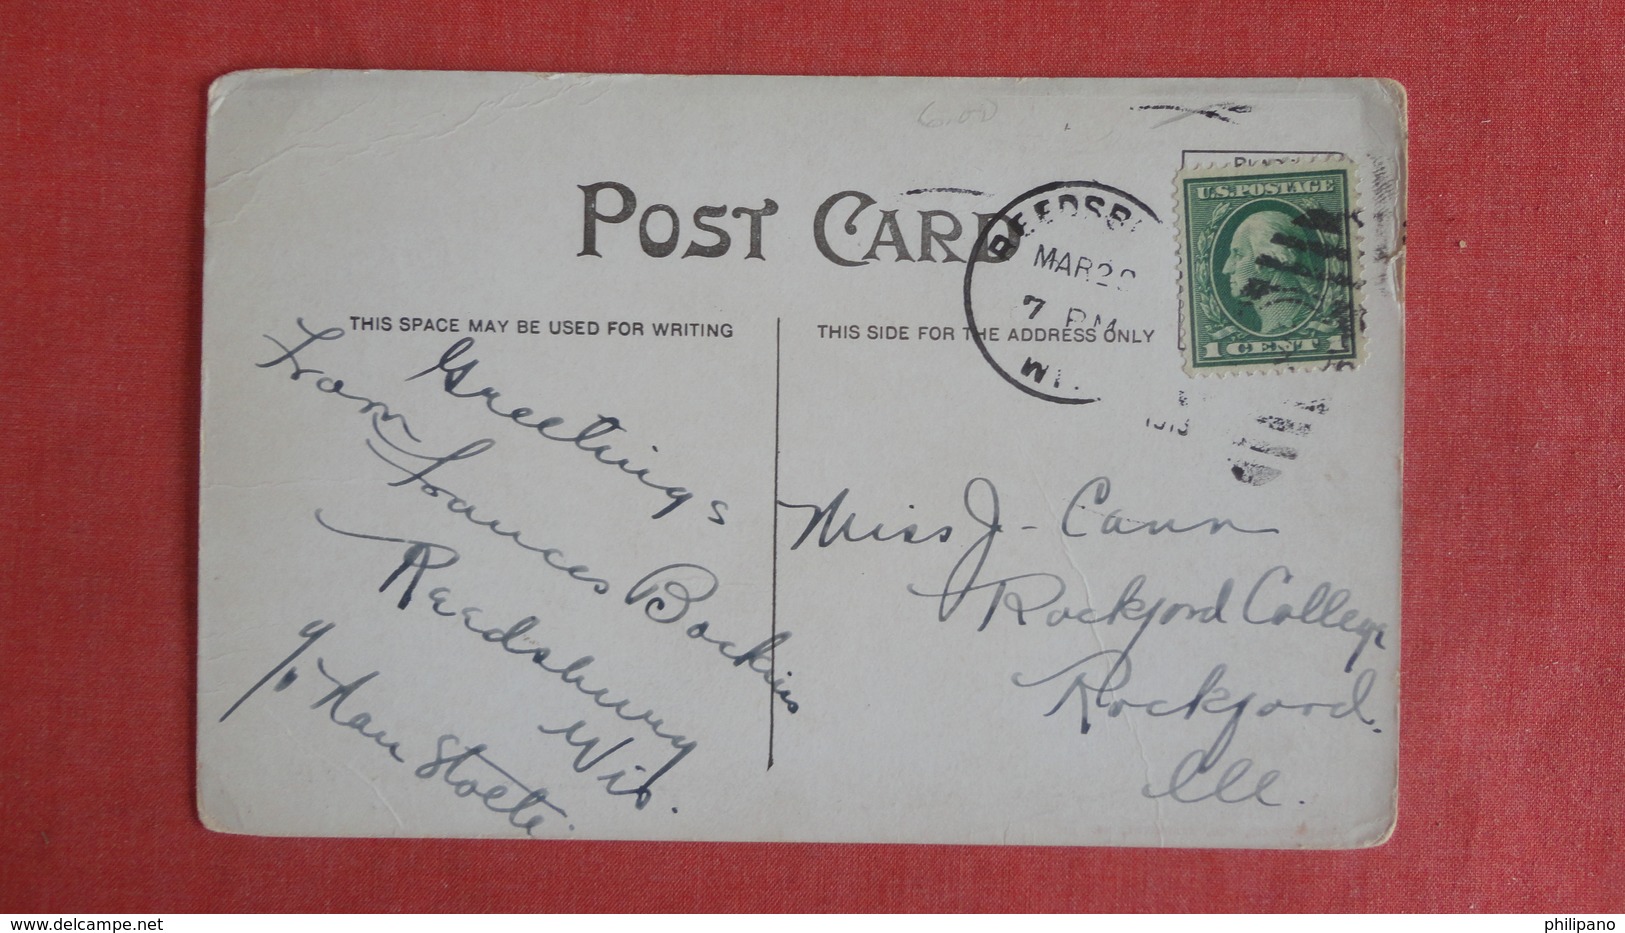 6.00
POST CARD
REEDSB
MAR 2
7 PM
WI
U.S. POSTAGE
1 CENT 1
THIS SPACE MAY BE USED FOR WRITING
THIS SIDE FOR THE ADDRESS ONLY
Greetings
From Frances Bockius
Reedsbury
Wis.
Miss J- Cann
Rockford College
Rockford.
Ill.
delcampe.net
philipano